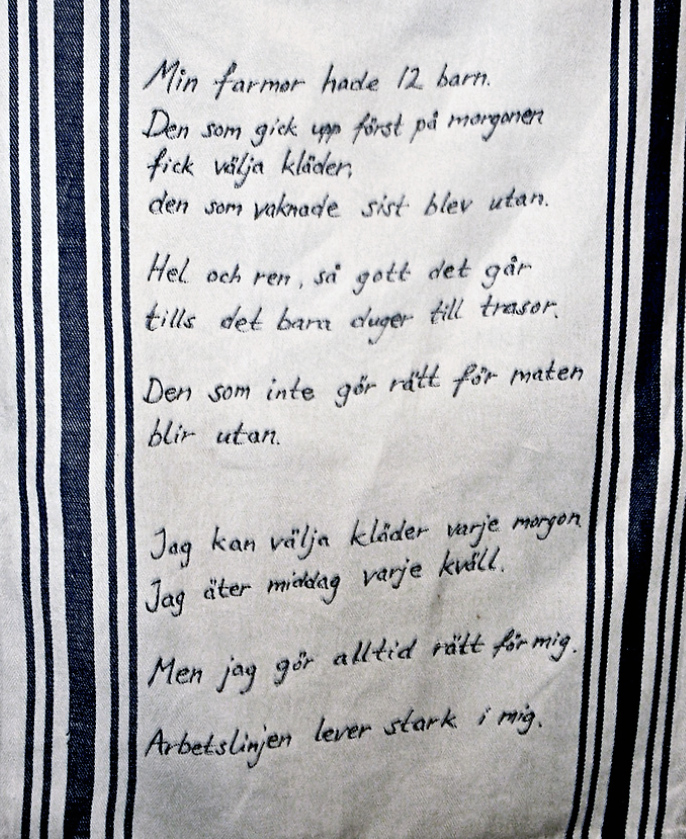 Min farmor hade 12 barn.
Den som gick upp först på morgonen
fick välja kläder,
den som vaknade sist blev utan.
Hel och ren, så gott det går
tills det bara duger till trasor.
Den som inte gör rätt för maten
blir utan.
Jag kan välja kläder varje morgon
Jag äter middag varje kväll.
Men jag gör alltid rätt för mig.
Arbetslinjen lever stark i mig.